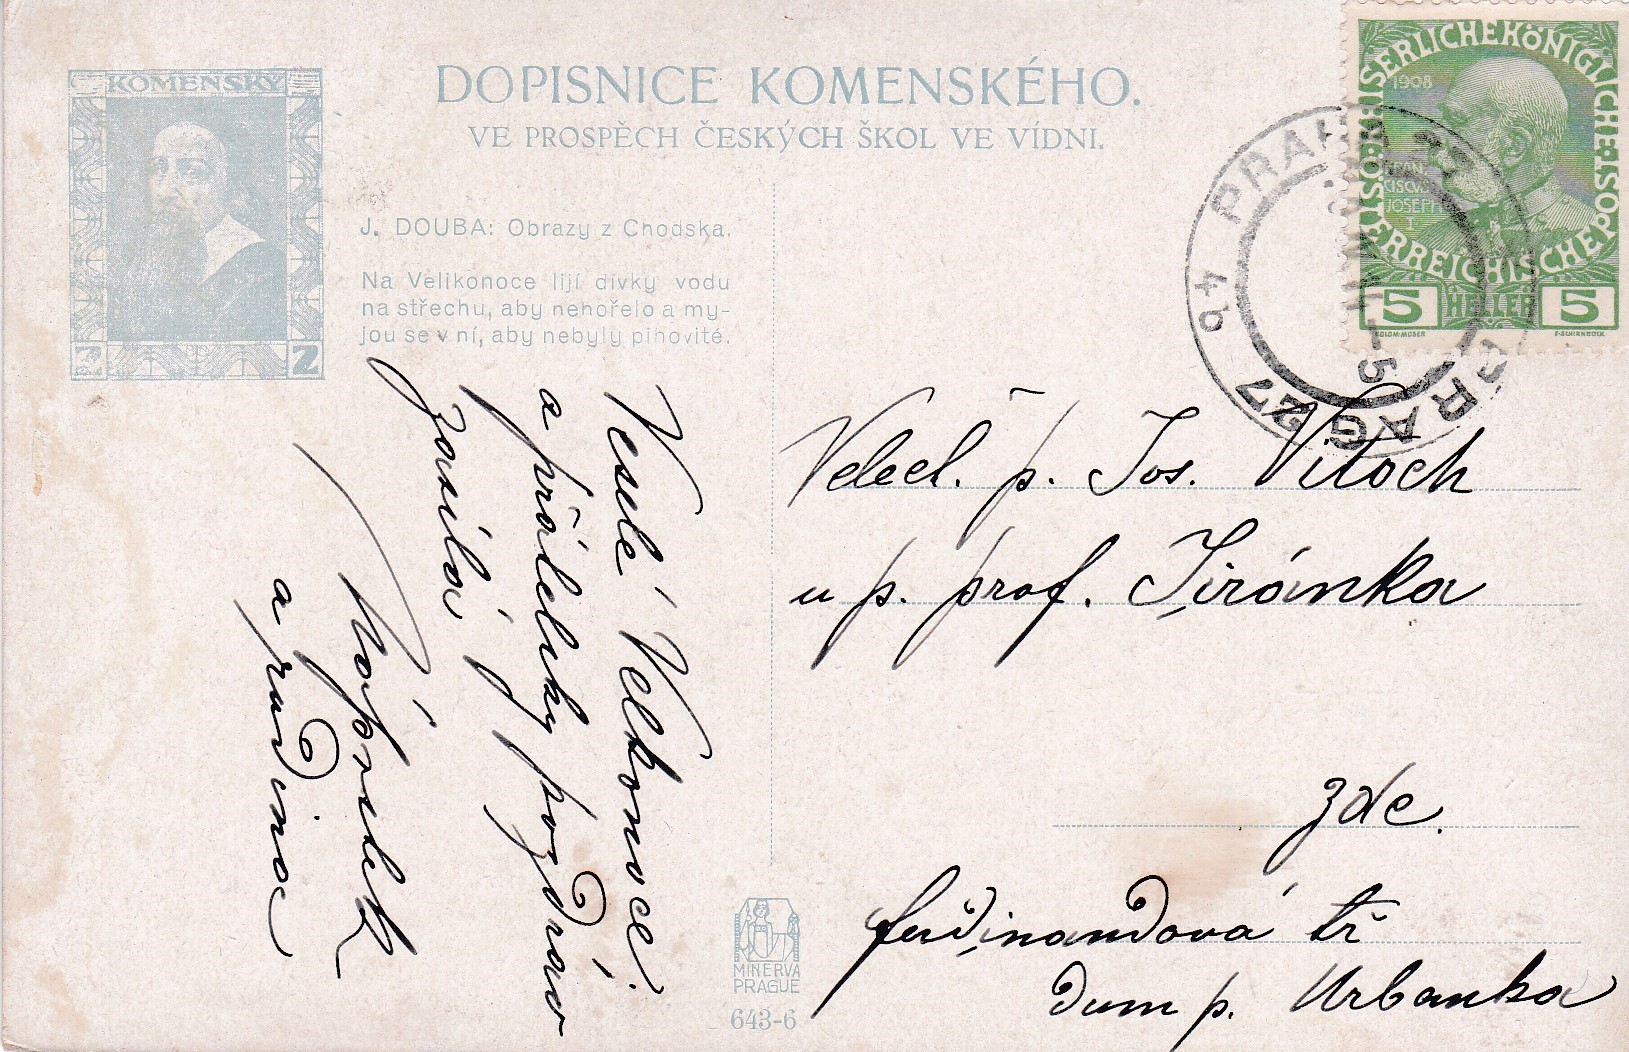 KOMENSKÝ
2
DOPISNICE KOMENSKÉHO.
VE PROSPĚCH ČESKÝCH ŠKOL VE VÍDNI.
J. DOUBA: Obrazy z Chodska.
Na Velikonoce lijí dívky vodu
na střechu, aby nehořelo a my-
jou se v ní, aby nebyly pihovité.
Veselé Velkonoce
a přátelský pozdrav
zasílá
a rodina
MINERVA
PRAGUE
643-6
KAISERLICHEKÖNIGLICHE·ÖSTERREICHISCHEPOST
1908
FRAN
CISCVS
JOSEPH
I
5 HELLER 5
KOLOM·MOSER
F·SCHIRNBÖCK
PRAHA
PRAG 27
4b
Velect. p. Jos. Vitoch
u p. prof. Jiránka
zde.
ferdinandová tř
dum p. Urbanka